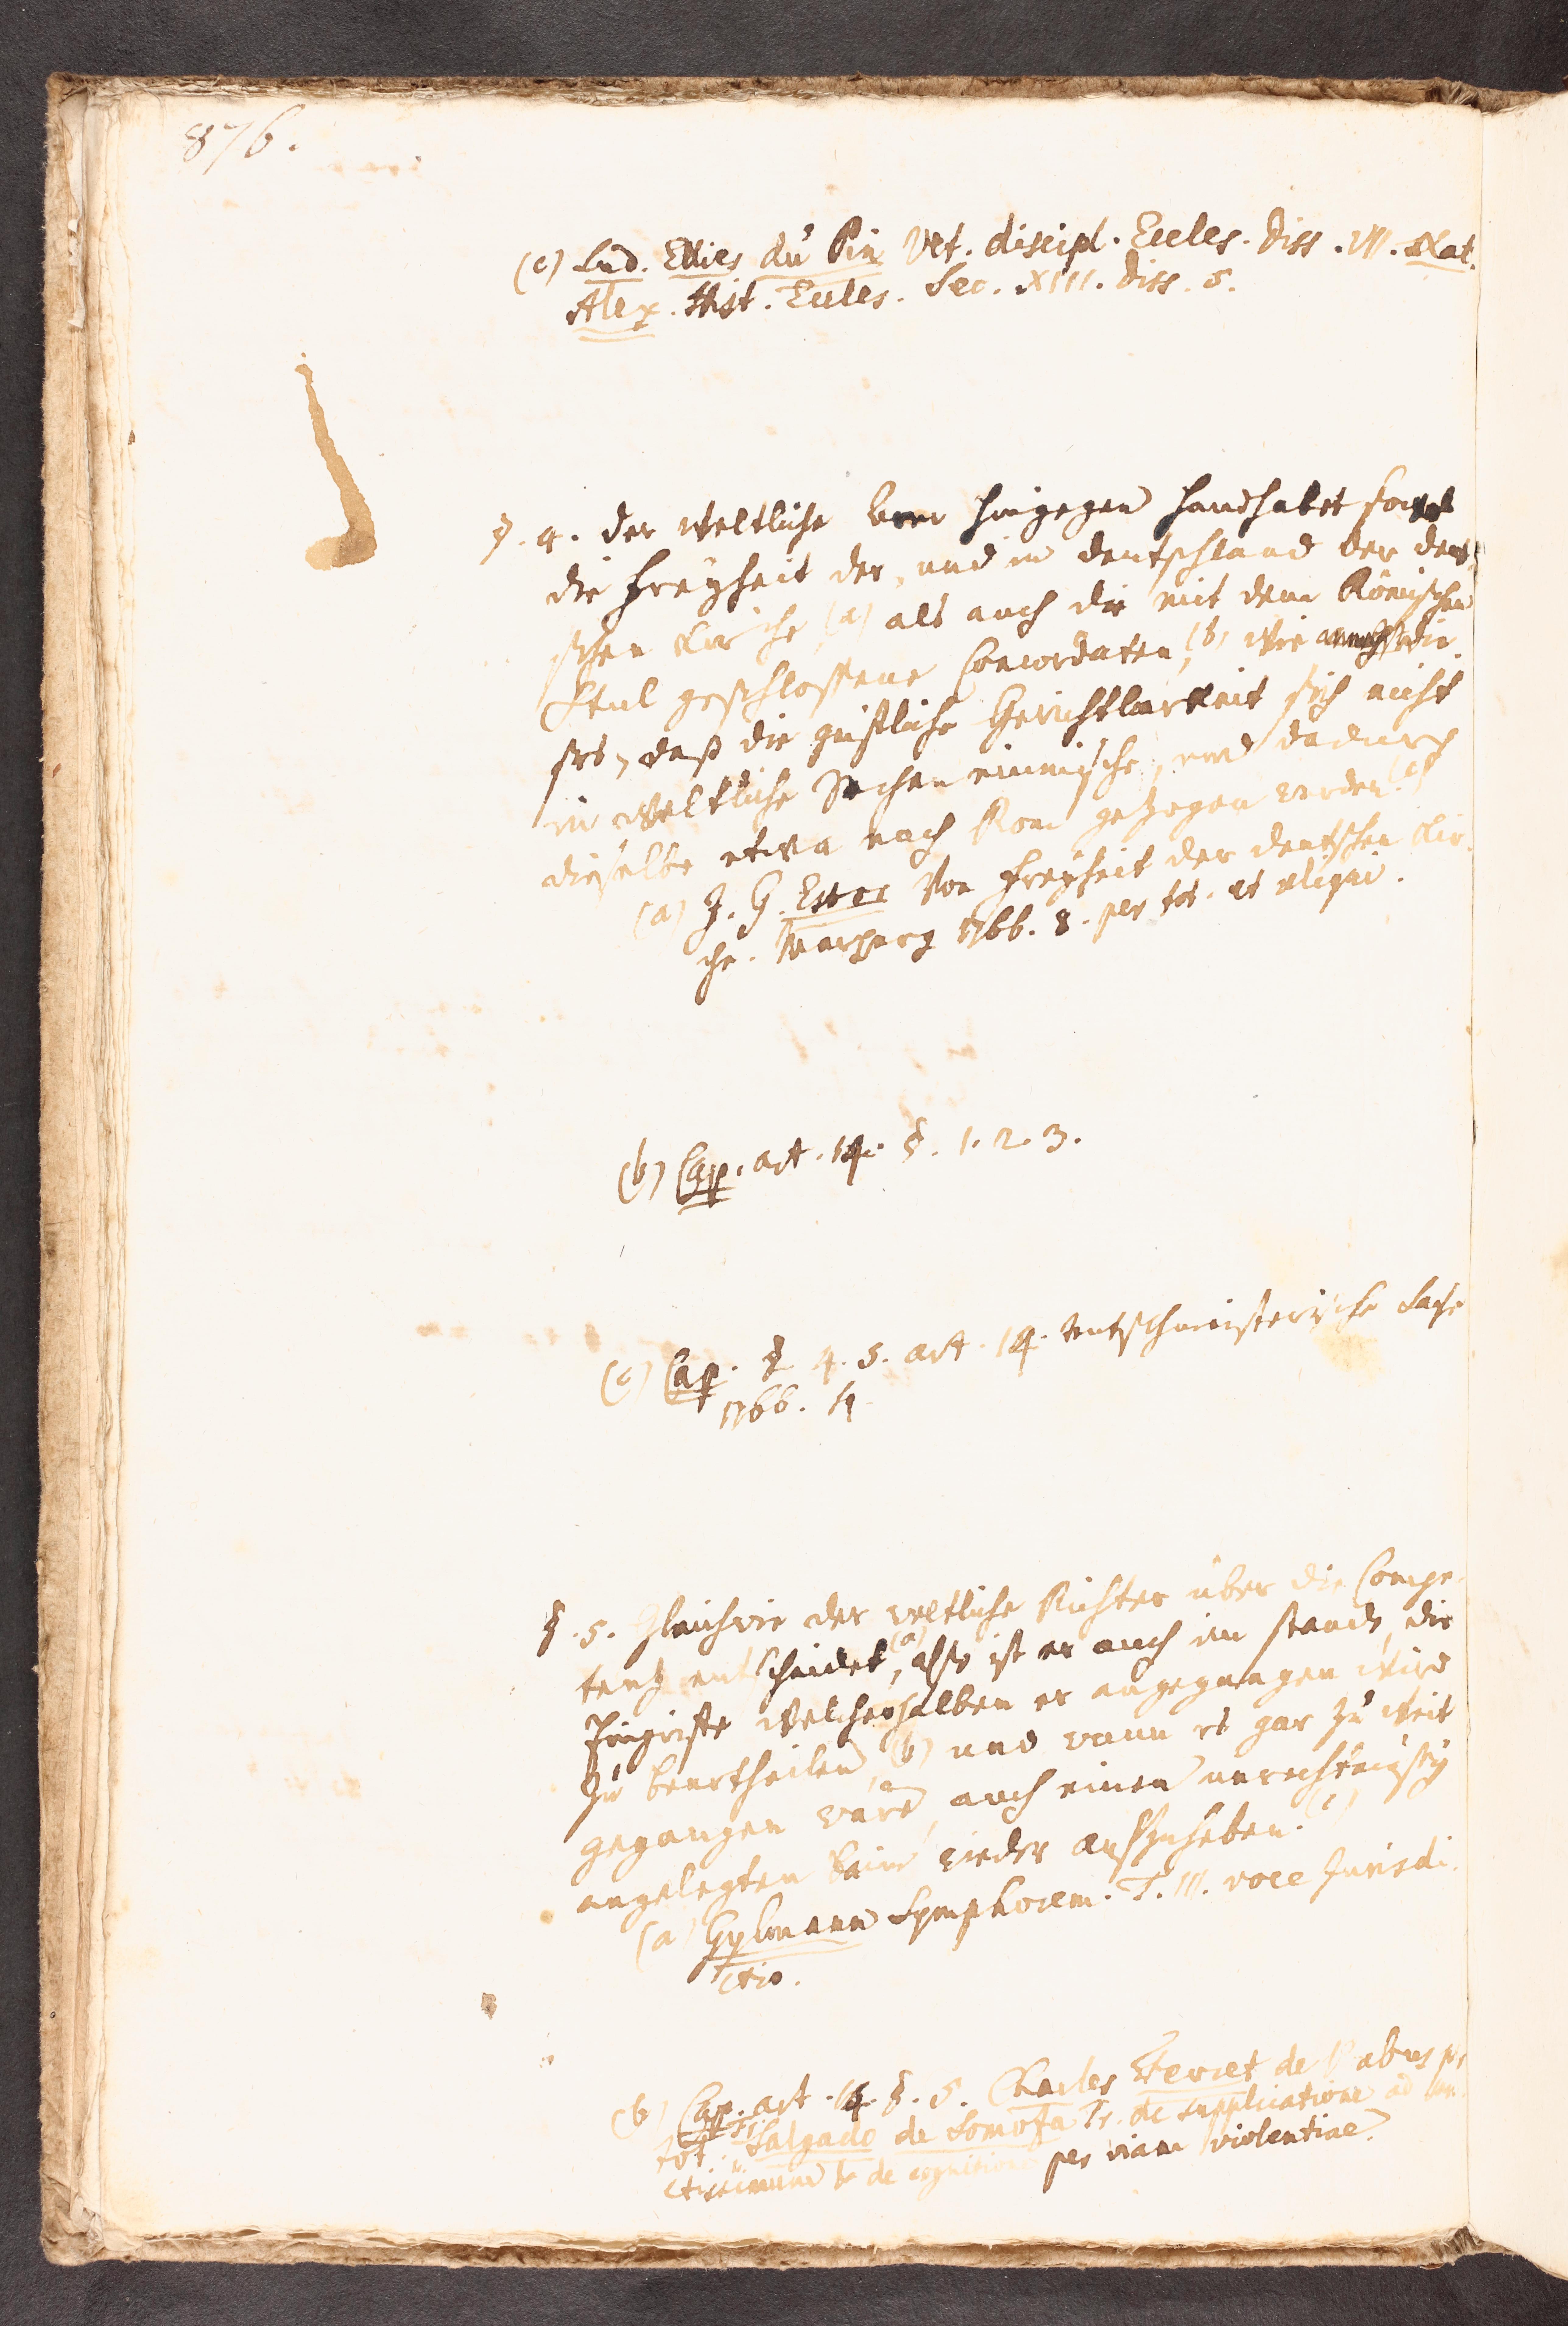 876.
(c) Lud. Ellies du Pin Vet. discipl. Eccles. Diss. VII. Nat.
Alex. Hist. Eccles. Sec. XIII. Diss. 5.
§. 4. der weltliche hingegen handhabet sowol
die Freyheit der, und in Deutschland der deut-
schen Kirche (a) als auch die mit dem Römischen
Stul geschlossene Concordaten, (b) wie
daß die geistliche Gerichtbarkeit sich nicht
in weltliche Sachen einmische, und dadurch
dieselbe etwa nach Rom gezogen werden. (c)
(a) J. G. Estor Von Freyheit der deutschen Kir-
che. Marpurg 1766. 8. per tot. et reliqui.
(b) Cap. art. 14. §. 1. 2. 3.
(c) Cap. §. 4. 5. art. 14. deutschmeisterische Sache
1766. 4
§. 5. Gleichwie der weltliche Richter über die Compe-
tenz entscheidet, (a) also ist er auch im stande, die
Eingriffe welcherhalben er angegangen wird
zu beurtheilen, (b) und wann es gar zu weit
gegangen wäre, auch einen unrechtmässig
angelegten Bann wieder aufzuheben. (c)
(a) Gylmann Symphorem. T. III. voce Jurisdi-
ctio.
(b) Cap. art. 14. §. 5. Charles Fevret de l'abus per
tot. Salgado de Somoza Tr. de supplicatione ad san-
ctissimum & de cognitione per viam violentiae.